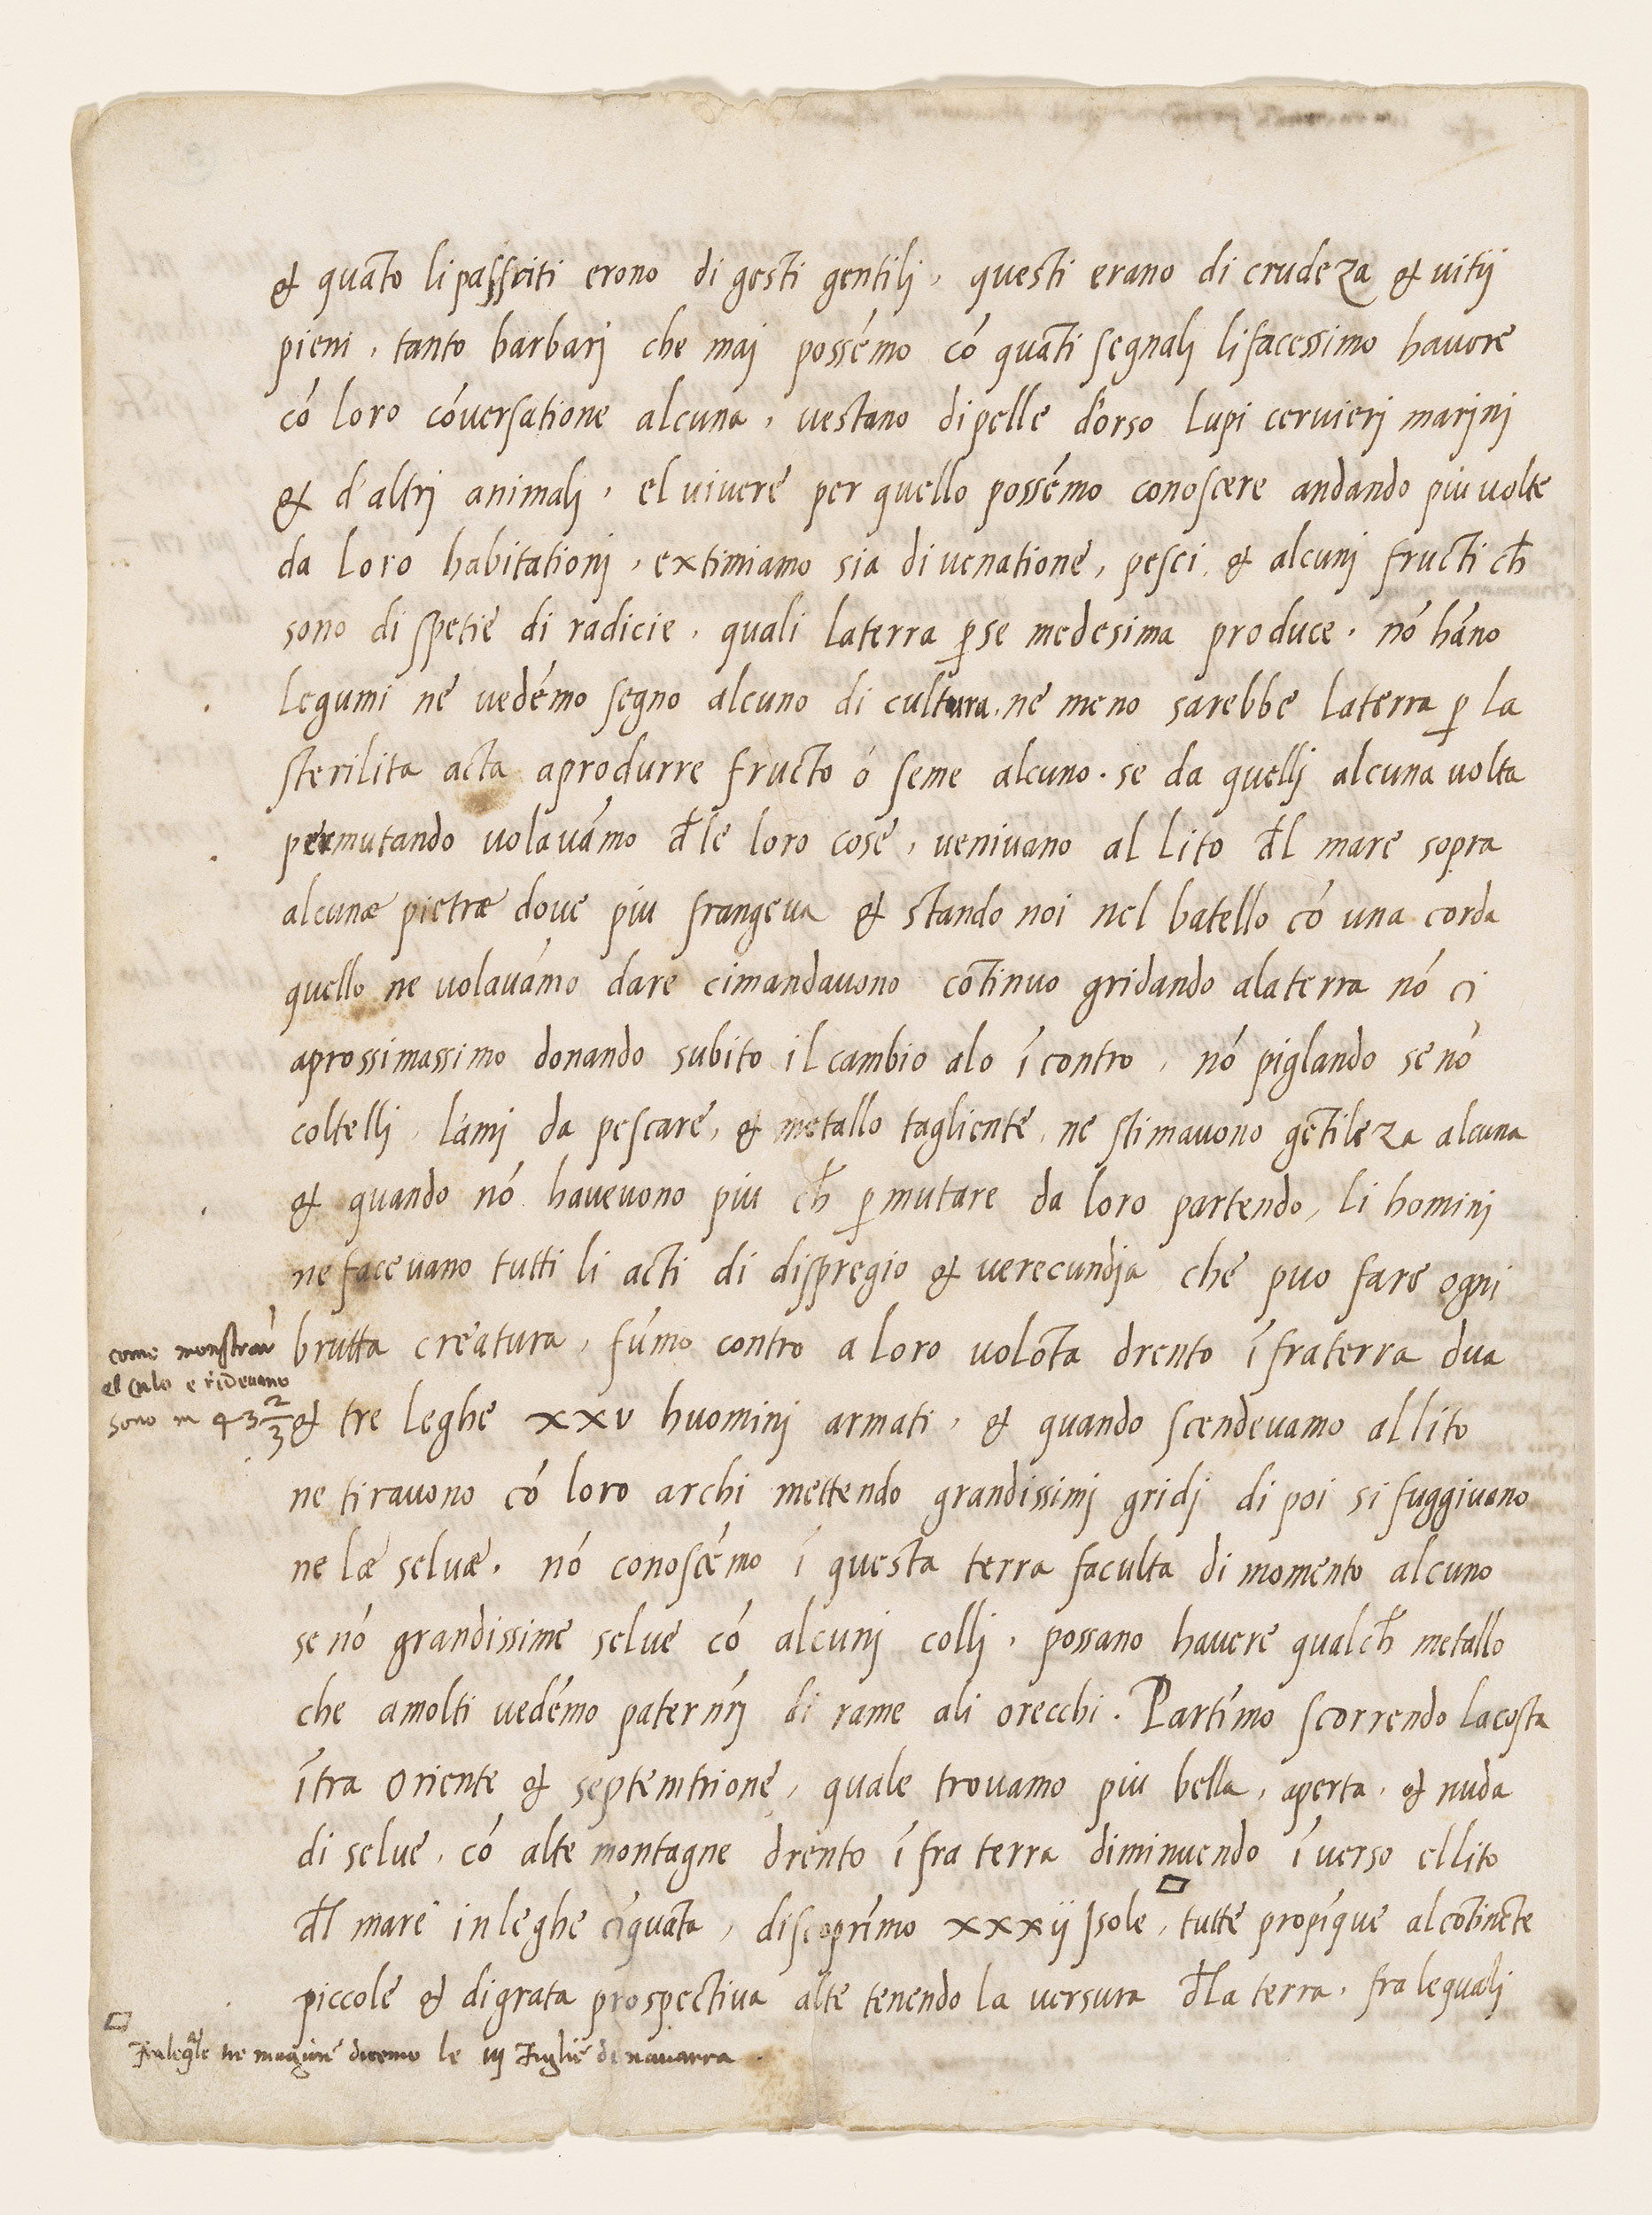 & quāto li passati erono di gesti gentili, questi erano di crudeza & vitij
pieni, tanto barbarj che maj possémo có quāti segnalj li facessimo havere
có loro cóversatione alcuna, vestano di pelle d'orso lupi cervierj marjnj
& d'altrj animalj, el vivere per quello possémo conoscere andando piu volte
da loro habitationj, extimiamo sia di venatione, pesci, & alcunj fructi cħ
sono di spetie di radicie, quali la terra ꝑ se medesima produce. nó hāno
legumi ne vedémo segno alcuno di cultura, ne meno sarebbe la terra ꝑ la
sterilita acta a produrre fructo ó seme alcuno. se da quellj alcuna volta
permutando volavámo đle loro cose, venivano al lito đl mare sopra
alcunæ pietræ dove piu frangeva & stando noi nel batello có una corda
quello ne volavámo dare ci mandavono cōtinuo gridando a la terra nó ci
aprossimassimo donando subito il cambio a lo īcontro, nó piglando se nó
coltelli, l'ami da pescare, & metallo tagliente, ne stimavono gētileza alcuna
& quando nó havevono piu cħ ꝑmutare da loro partendo, li hominj
ne facevano tutti li acti di dispregio & verecundja che puo fare ogni
come monstrar̄ brutta creatura, fúmo contro a loro volōta drento īfra terra dua
el culo e ridevano
sono m 43 2/3 & tre leghe xxv huominj armati, & quando scendevamo al lito
ne tiravono có loro archi mettendo grandissimj gridj di poi si fuggivano
ne læ selvæ. nó conoscémo ī questa terra faculta di momento alcuno
se nó grandissime selve có alcunj collj, possano havere qualcħ metallo
che a molti vedémo paternr̄j di rame ali orecchi. Partímo scorrendo la costa
ītra Oriente & septemtrione, quale trovamo piu bella, aperta, & nuda
di selve, có alte montagne drento īfra terra diminuendo īverso el lito
đl mare in leghe cīquāta, discoprímo xxxij Isole, tutte propīque al cōtinēte
piccole & di grata prospectiva alte tenendo la versura đla terra, fra le quali
Fra le qle tre magiore dicemo le iij Figlie di navarra.